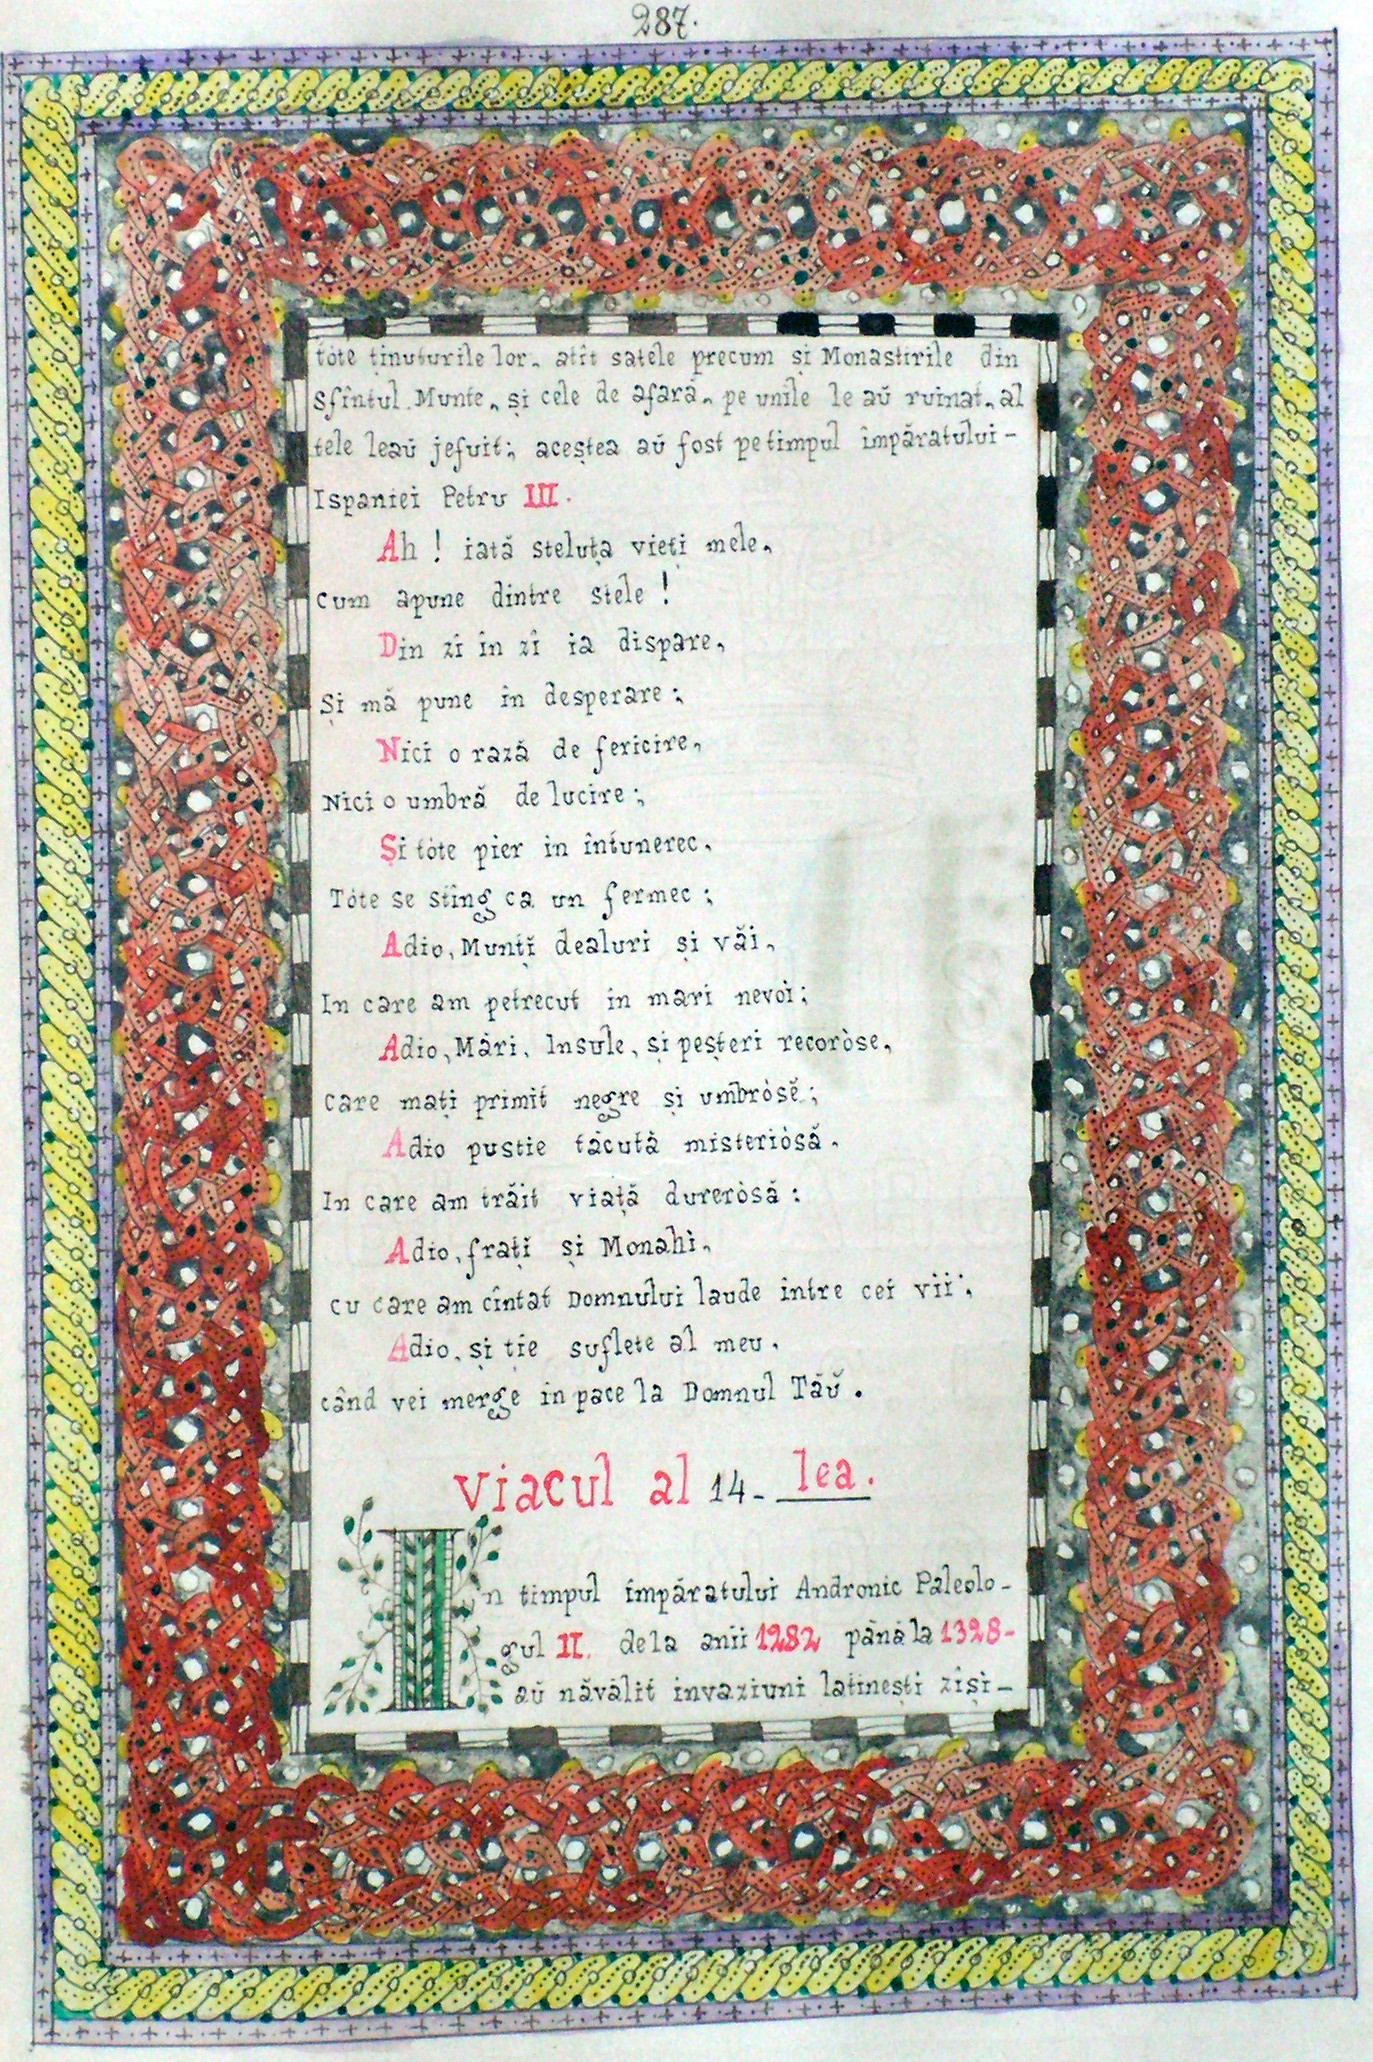 287.
tòte ținuturile lor, atît satele precum și Monastirile din
Sfîntul Munte, și cele de afară, pe unile le aŭ ruinat, al
tele leaŭ jefuit; aceștea aŭ fost pe timpul împăratului-
Ispaniei Petru III.
Ah ! iată steluța vieți mele,
Cum apune dintre stele !
Din zî în zî ia dispare,
Și mă pune în desperare;
Nici o rază de fericire,
Nici o umbră de lucire;
Și tòte pier in întunerec,
Tòte se sting ca un fermec;
Adio, Munțĭ dealuri și văi,
In care am petrecut in mari nevoì;
Adio, Mări, Insule, și peșteri recoròse,
Care mați primit negre și umbròsĕ;
Adio pustie tăcută misteriòsă,
In care am trăit viață dureròsă:
Adio, frațĭ și Monahì,
cu care am cîntat Domnului laude intre cei vii;
Adio, și ție suflete al meu,
când vei merge in pace la Domnul Tăŭ.
Viacul al 14-lea.
In timpul împăratului Andronic Paleolo-
gul II. dela anii 1282 până la 1328-
aŭ năvălit invaziuni latinești ziși-